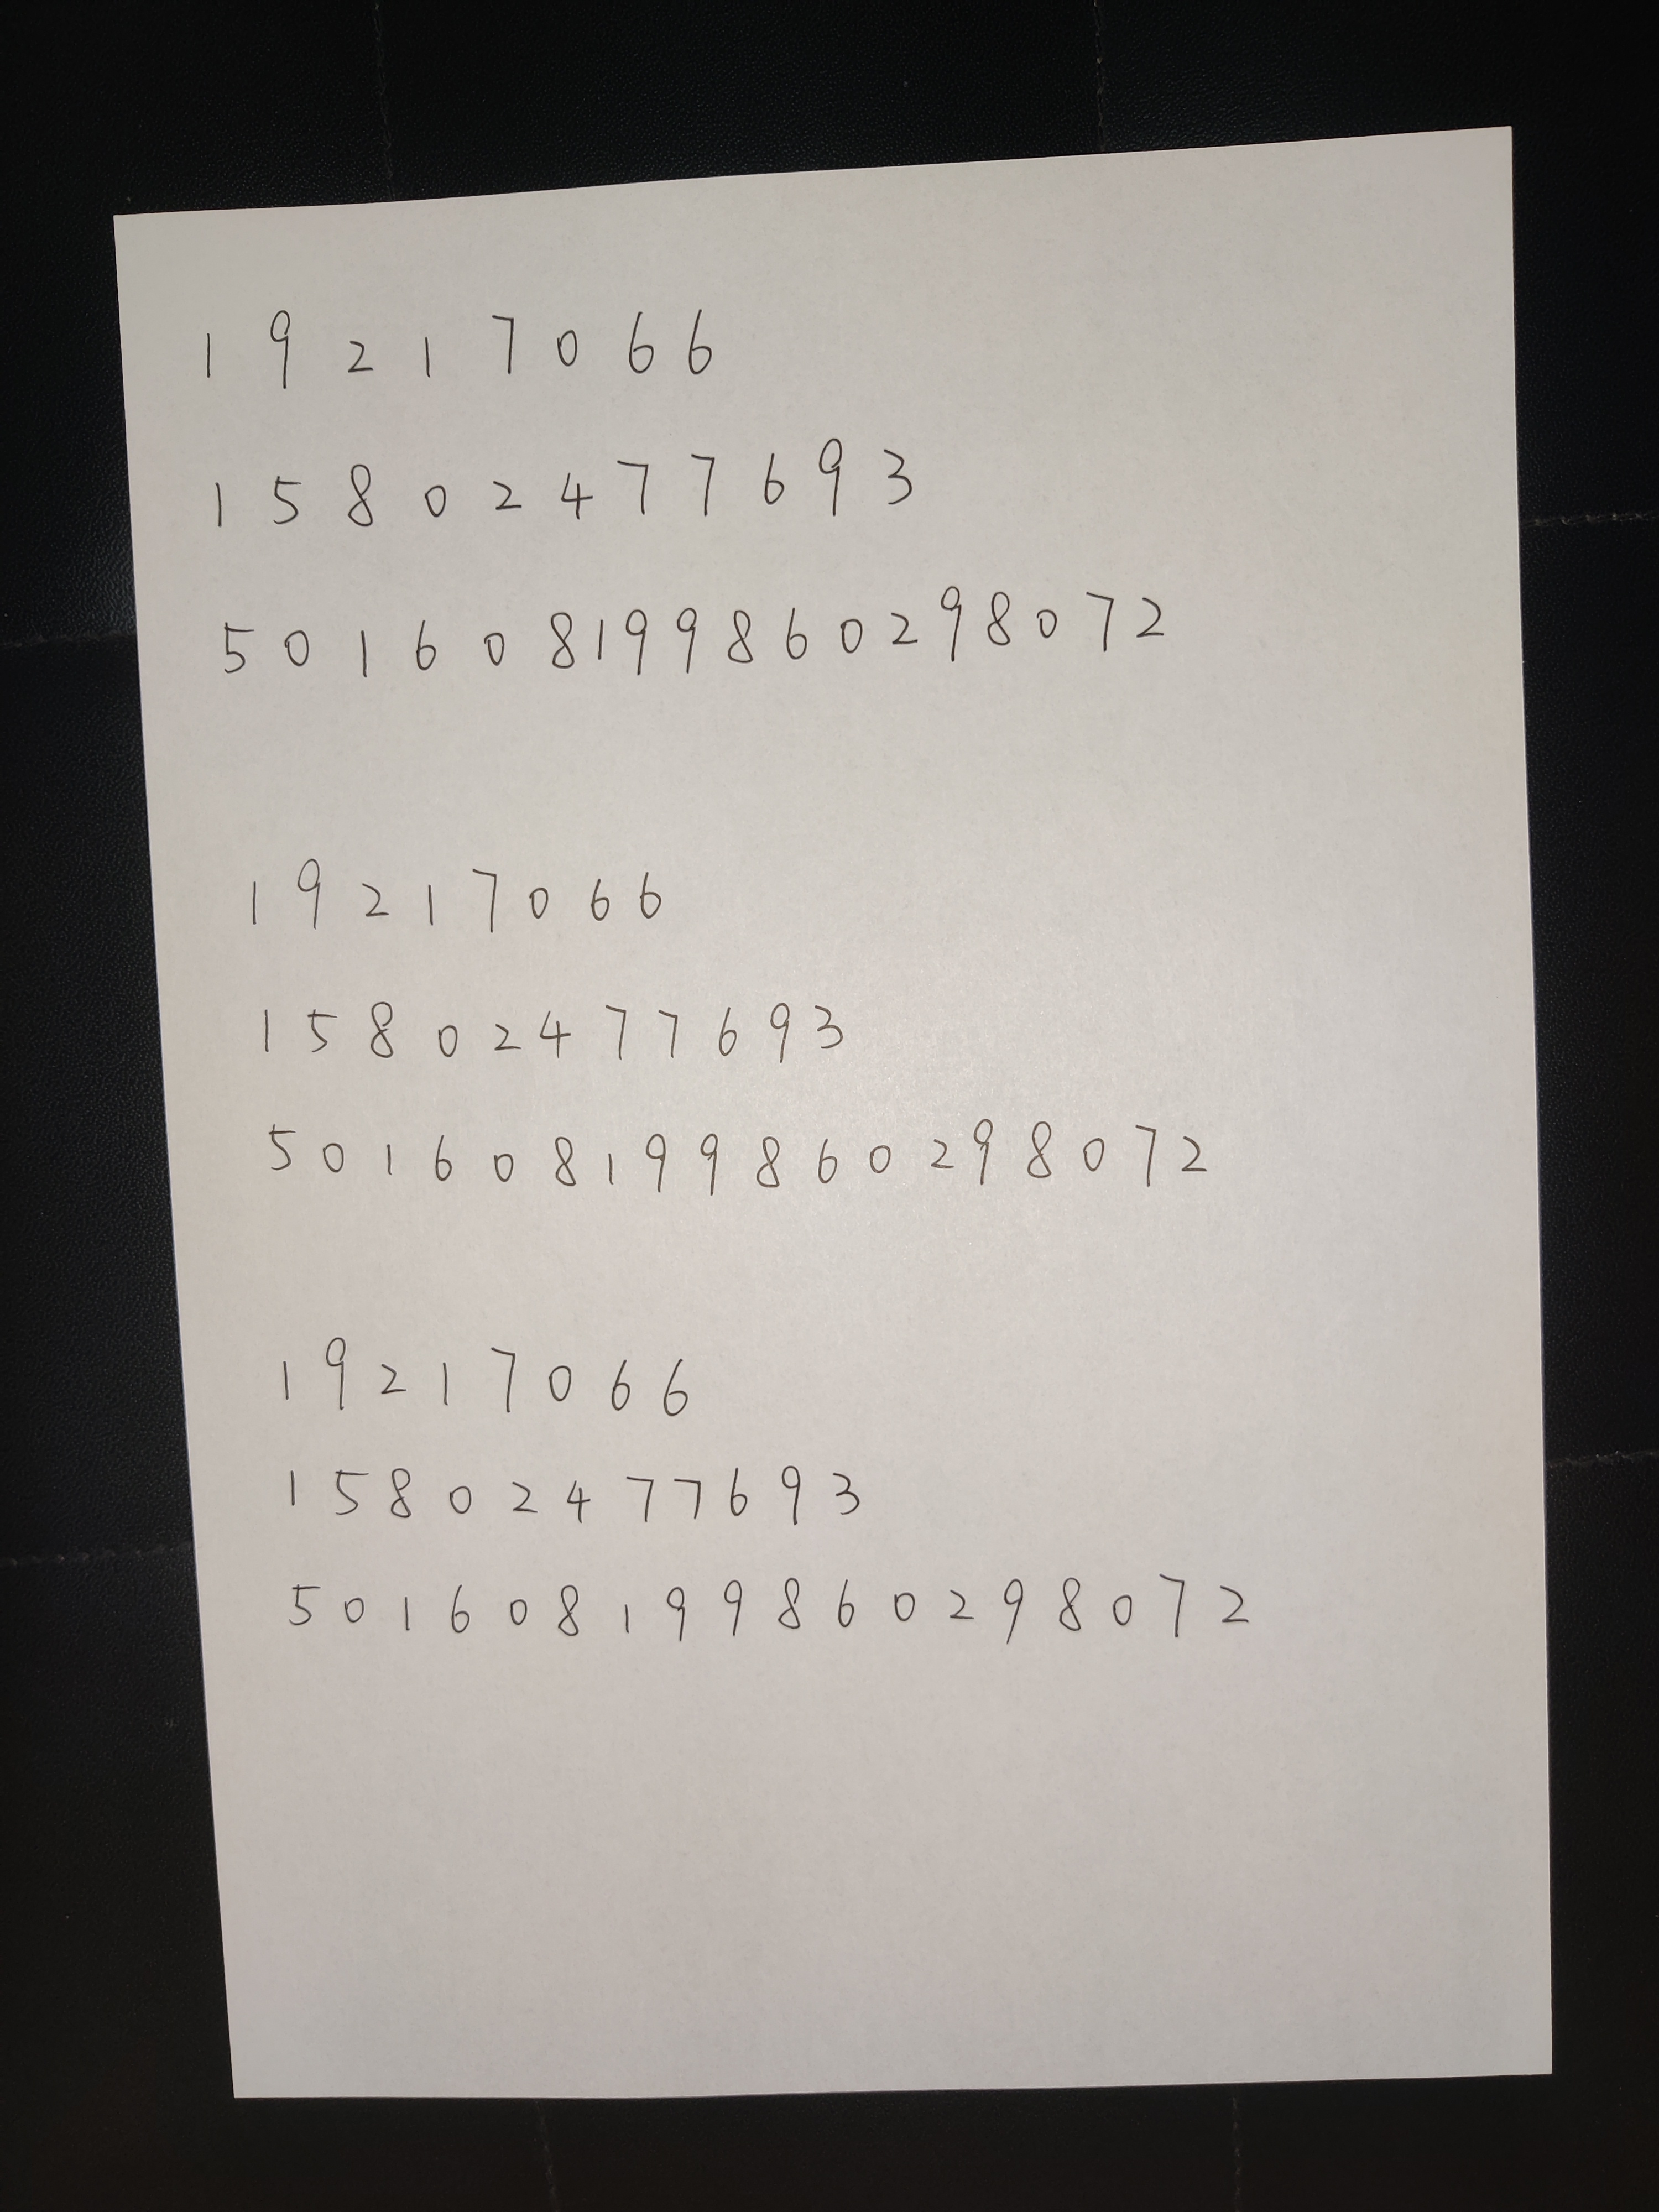 1 9 2 1 7 0 6 6
1 5 8 0 2 4 7 7 6 9 3
5 0 1 6 0 8 1 9 9 8 6 0 2 9 8 0 7 2
1 9 2 1 7 0 6 6
1 5 8 0 2 4 7 7 6 9 3
5 0 1 6 0 8 1 9 9 8 6 0 2 9 8 0 7 2
1 9 2 1 7 0 6 6
1 5 8 0 2 4 7 7 6 9 3
5 0 1 6 0 8 1 9 9 8 6 0 2 9 8 0 7 2